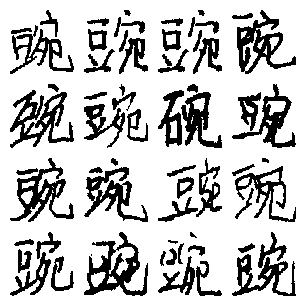 豌豌豌豌
豌豌碗豌
豌豌豌豌
豌豌豌豌